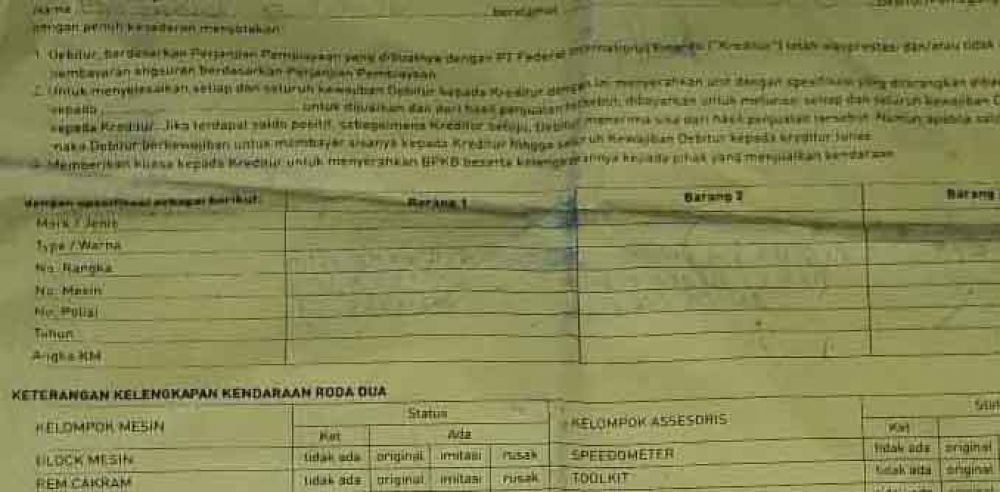 Nama beralamat
dengan penuh kesadaran menyatakan:
1. Debitur, berdasarkan Perjanjian Pembiayaan yang dibuatnya dengan PT Federal International Finance ("Kreditur") telah wanprestasi dan/atau tidak
pembayaran angsuran berdasarkan Perjanjian Pembiayaan
2. Untuk menyelesaikan setiap dan seluruh kewajiban Debitur kepada Kreditur dengan ini menyerahkan unit dengan spesifikasi yang diterangkan
kepada untuk dijualkan dan dari hasil penjualan tersebut, dibayarkan untuk melunasi setiap dan seluruh kewajiban
kepada Kreditur. Jika terdapat saldo positif, sebagaimana Kreditur setuju, Debitur menerima sisa dari hasil penjualan tersebut. Namun apabila
maka Debitur berkewajiban untuk membayar sisanya kepada Kreditur hingga seluruh Kewajiban Debitur kepada kreditur lunas
Memberikan kuasa kepada Kreditur untuk menyerahkan BPKB beserta kelengkapannya kepada pihak yang menjualkan kendaraan
dengan spesifikasi sebagai berikut: Barang 1 Barang 2 Barang
Merk / Jenis
Type / Warna
No. Rangka
No. Mesin
No. Polisi
Tahun
Angka KM
KETERANGAN KELENGKAPAN KENDARAAN RODA DUA
KELOMPOK MESIN Status KELOMPOK ASSESORIS
Ket Ada Ket
BLOCK MESIN tidak ada original imitasi rusak SPEEDOMETER tidak ada original
REM CAKRAM tidak ada original imitasi rusak TOOLKIT tidak ada original